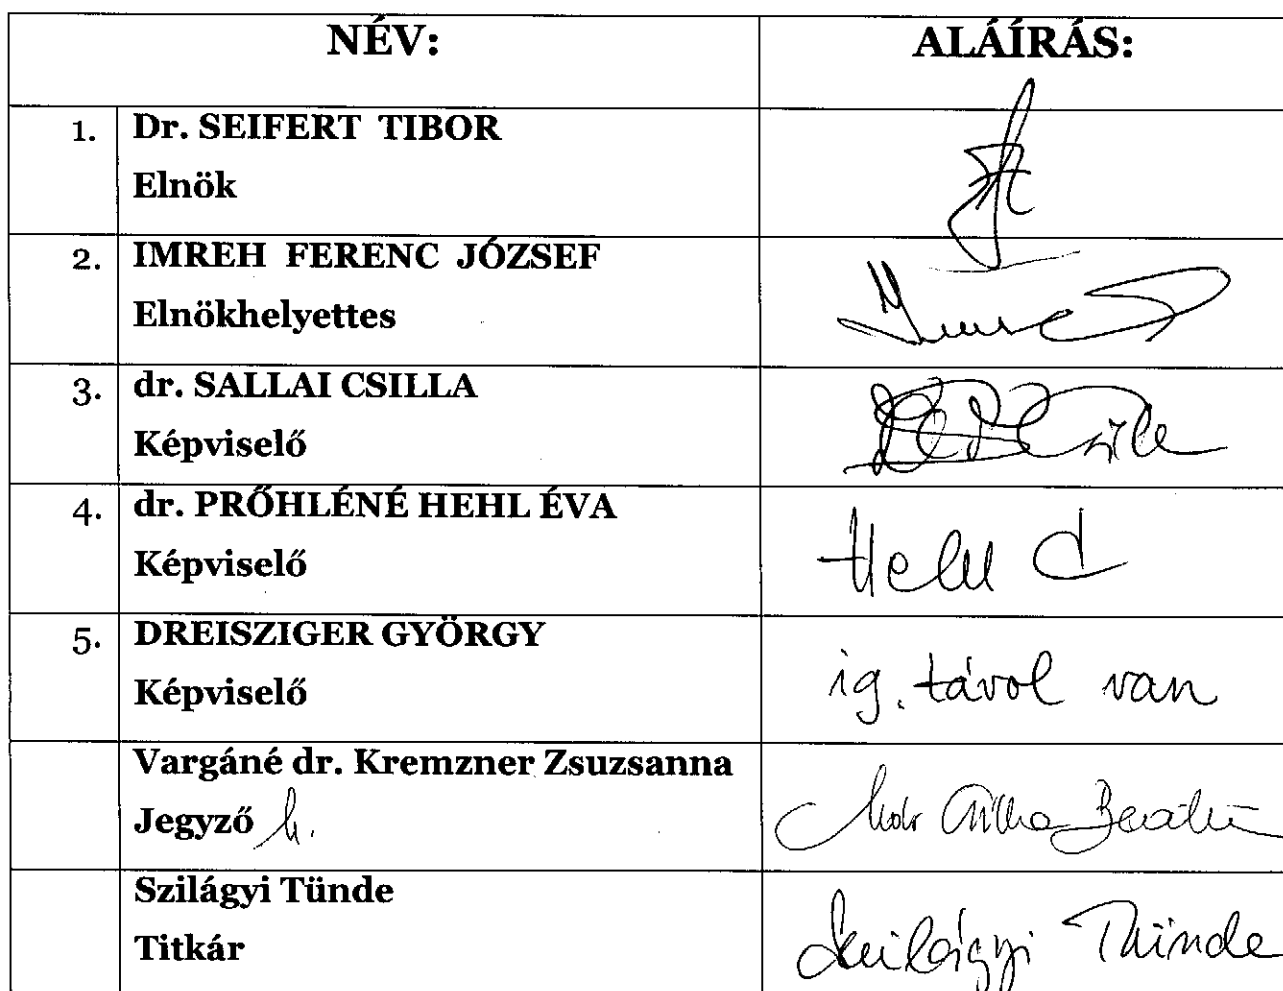 NÉV: ALÁÍRÁS:
1. Dr. SEIFERT TIBOR
Elnök
2. IMREH FERENC JÓZSEF
Elnökhelyettes
3. dr. SALLAI CSILLA
Képviselő
4. dr. PRŐHLÉNÉ HEHL ÉVA
Képviselő
5. DREISZIGER GYÖRGY
Képviselő
ig. távol van
Vargáné dr. Kremzner Zsuzsanna
Jegyző h.
Szilágyi Tünde
Titkár
Szilágyi Tünde